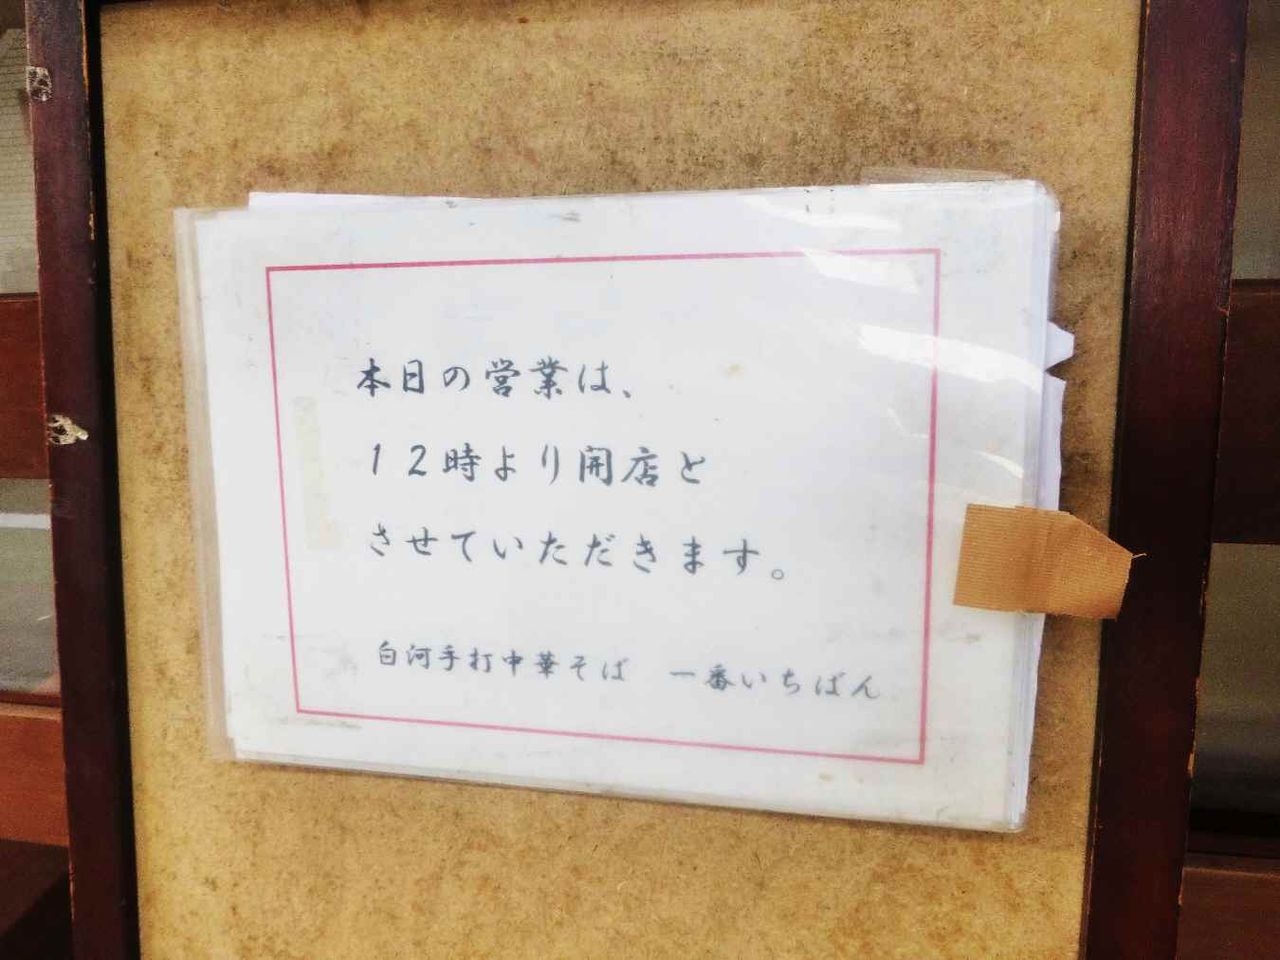 本日の営業は、
１２時より開店と
させていただきます。
白河手打中華そば　一番いちばん